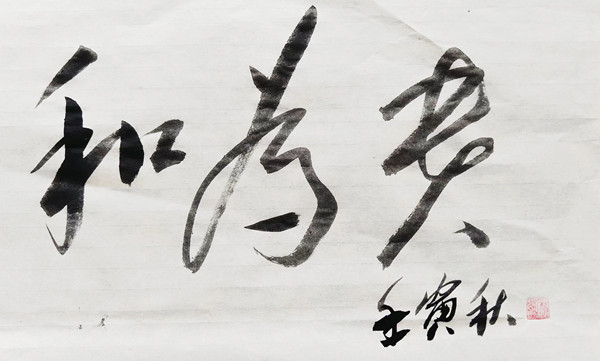 和为贵
壬寅秋